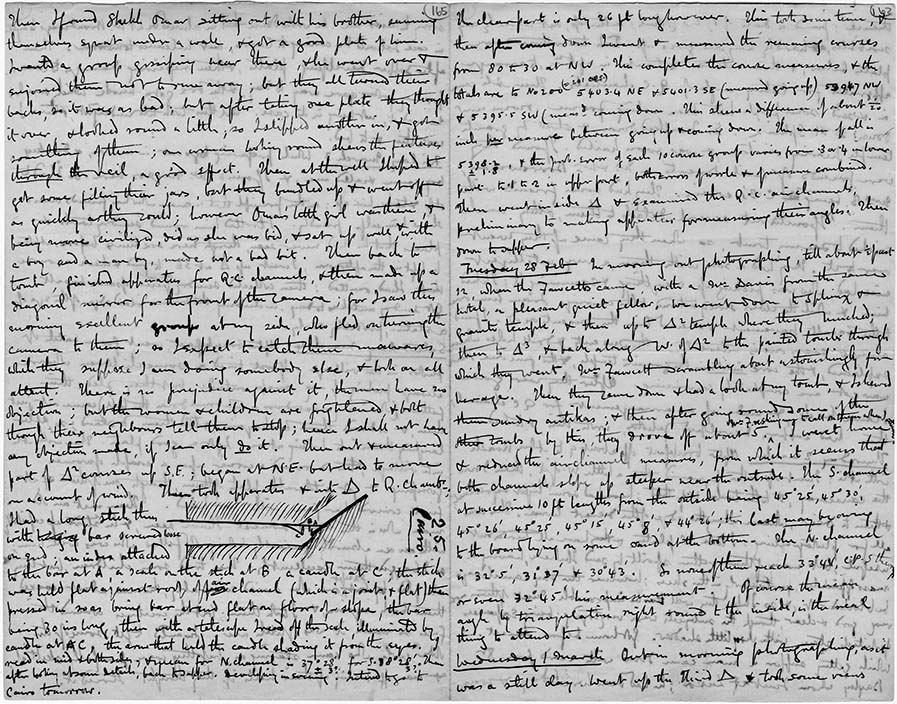 165
Then I found Sheikh Omar sitting out with his brother, sunning
themselves squat under a wall, & got a good plate of him.
a group gossiping near there, & he went over &
enjoined them not to run away; but they all turned their
backs, so it was as bad; but after taking one plate they thought
it over, & looked round a little, so I slipped another in, & got
some of them; one woman looking round shews the features
through the veil, a good effect. Then at the well I helped to
get some filling their jars, but they bundled up & went off
as quickly as they could; however Omar's little girl was there, &
being more civilized, did as she was bid, & sat up well & with
a boy and a man by, made not a bad bit. Then back to
tomb, finished apparatus for Q.C. channels, & then made up a
diagonal mirror for the front of the camera; for I saw this
morning excellent groups at my side, who fled on turning the
camera to them; so I expect to catch them unawares,
while they suppose I am doing somebody else, & look on all
attent. There is no prejudice against it, the men have no
objection; but the women & children are frightened & bolt
though their neighbours tell them to stop; hence I shall not have
any objection made, if I can only do it. Then out & measured
part of Δ² courses up S.E.; began at N.E. but had to move
on account of wind. Then took apparatus & into Δ to Q. chamb.
I had a long stick thus
with bar screwed loose
on end, an index attached
to the bar at A, a scale on the stick at B, a candle at C; the stick
was held flat against roof of air channel (which is a joint, & flat) then
pressed in so as to bring bar at end flat on floor of slope, the bar
being 30 ins long, then with a telescope I read off the scale, illuminated by
candle at C, the arm that held the candle shading it from the eyes. I
read in and both sides; & mean for N. channel is 37°28' for S. 38°28'. Then
after looking at some details, back to supper. Developing in evening. Intend to go to
Cairo tomorrow.
The clear part is only 26 ft long however. This took some time, &
then after coming down I went & measured the remaining courses
from 80 to 30 at NW. This completes the course measures, & the
totals are to No 200 5403.4 NE & 5401.3 SE (measured going up) 5394.7 NW
& 5395.5 SW (meas^d coming down. This shews a difference of about 1/20
inch per measure between going up & coming down. The mean of all is
5398.7 ± 1.8, & the prob. error of each 10 course group varies from 3 or 4 in lower
part to 1 to 2 in upper part, both errors of work & of measure combined.
Then went inside Δ & examined the Q.C. air channels,
preliminary to making apparatus for measuring their angles. Then
down to supper.
Tuesday 28 Feb. In morning out photographing, till about ½ past
12, when the Fawcetts came with a Mr Davis from the same
hotel, a pleasant quiet fellow; we went down to Sphinx &
granite temple, & then up to Δ² temple where they lunched;
then to Δ³, & back along W. of Δ² to the painted tombs through
which they went, Mrs Fawcett scrambling about astonishingly for
her age. Then they came down & had a look at my tomb, & I shewed
them sundry antikas, & then after going down of the
other tombs by this, they drove off about 5, I went home
& reduced the air channel measures, from which it seems that
both channels slope up steeper near the outside. The S. channel
at successive 10 ft lengths from the outside being 45°25', 45°30',
45°26', 45°25', 45°15', 45°8' & 44°26'; this last may be owing
to the board lying on some sand at the bottom. The N. channel
is 32°5', 31°37' & 30°43'. So none of them reach 33°44',
or even 32°45' his measurement. Of course the mean
angle by triangulation right round to the inside, is the real
thing to attend to.
Wednesday 1 March Out in morning photographing, as it
was a still day. Went up the third Δ & took some views